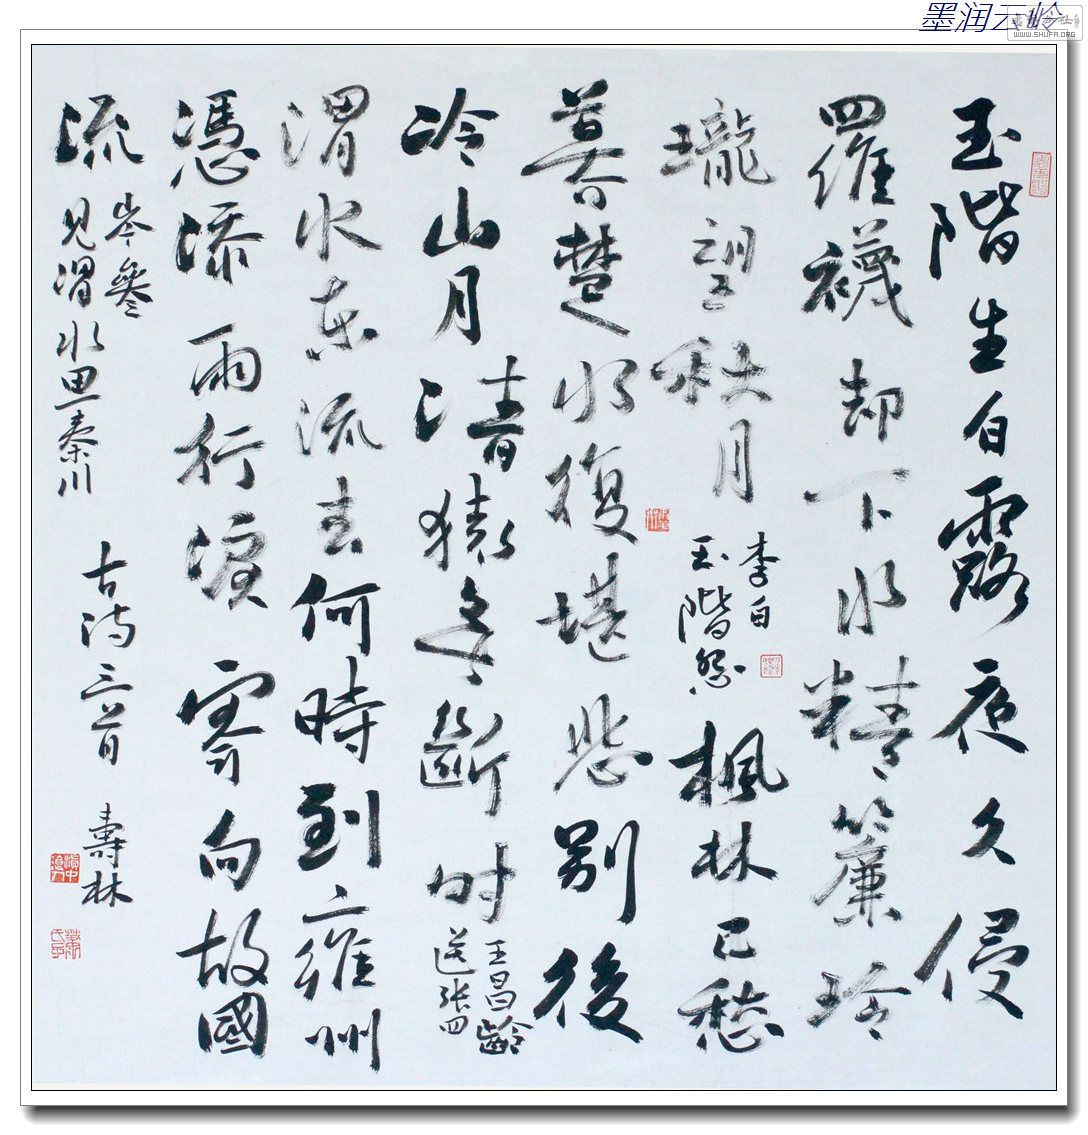 墨润云岭
WWW.SHUFA.ORG
玉階生白露夜久侵
羅襪却下水精簾玲
瓏望秋月
李白
玉階怨
楓林已愁
暮楚水復堪悲別後
冷山月清猿無断时
王昌齡
送張四
渭水東流去何時到雍州
憑添兩行淚寄向故國
流
岑參
見渭水思秦川
古诗三首
壽林